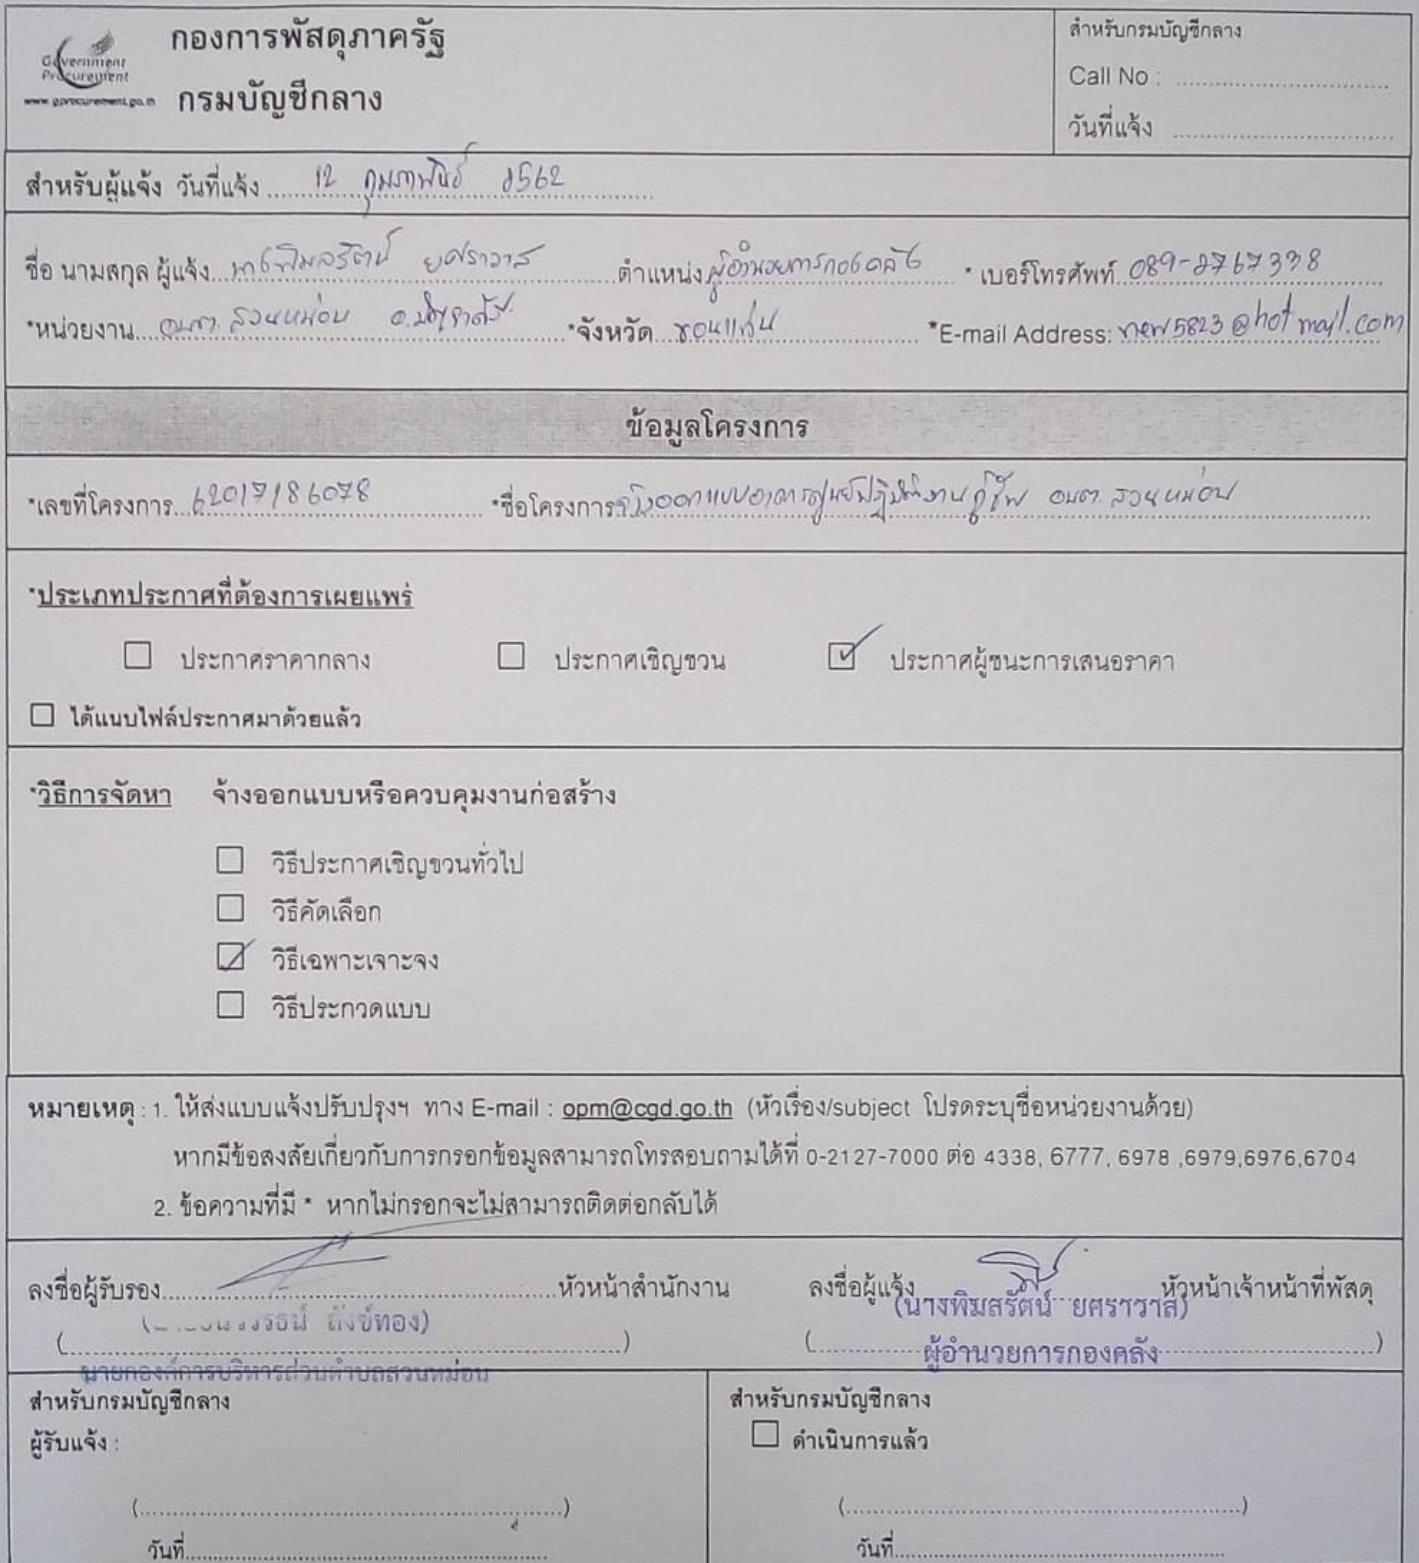 Government
Procurement
www.gprocurement.go.th
กองการพัสดุภาครัฐ
กรมบัญชีกลาง
สำหรับกรมบัญชีกลาง
Call No : ........................................
วันที่แจ้ง ........................................
สำหรับผู้แจ้ง วันที่แจ้ง ...... 12 กุมภาพันธ์ 2562 ......
ชื่อ นามสกุล ผู้แจ้ง...นางพิมลรัตน์ ยศราวาส......ตำแหน่ง ผู้อำนวยการกองคลัง...... * เบอร์โทรศัพท์ 089-2767338
*หน่วยงาน...อบต. สวนหม่อน อ.มัญจาคีรี......*จังหวัด...ขอนแก่น...... *E-mail Address: new5823@hotmail.com
ข้อมูลโครงการ
*เลขที่โครงการ...62017186078...... *ชื่อโครงการ จ้างออกแบบอาคารศูนย์ปฏิบัติงานกู้ชีพ อบต. สวนหม่อน
*ประเภทประกาศที่ต้องการเผยแพร่
☐ ประกาศราคากลาง ☐ ประกาศเชิญชวน ☑ ประกาศผู้ชนะการเสนอราคา
☐ ได้แนบไฟล์ประกาศมาด้วยแล้ว
*วิธีการจัดหา จ้างออกแบบหรือควบคุมงานก่อสร้าง
☐ วิธีประกาศเชิญชวนทั่วไป
☐ วิธีคัดเลือก
☑ วิธีเฉพาะเจาะจง
☐ วิธีประกวดแบบ
หมายเหตุ : 1. ให้ส่งแบบแจ้งปรับปรุงฯ ทาง E-mail : opm@cgd.go.th (หัวเรื่อง/subject โปรดระบุชื่อหน่วยงานด้วย)
หากมีข้อสงสัยเกี่ยวกับการกรอกข้อมูลสามารถโทรสอบถามได้ที่ 0-2127-7000 ต่อ 4338, 6777, 6978 ,6979,6976,6704
2. ข้อความที่มี * หากไม่กรอกจะไม่สามารถติดต่อกลับได้
ลงชื่อผู้รับรอง............................................หัวหน้าสำนักงาน ลงชื่อผู้แจ้ง..............................หัวหน้าเจ้าหน้าที่พัสดุ
(นางพิมลรัตน์ ยศราวาส)
ผู้อำนวยการกองคลัง
นายกองค์การบริหารส่วนตำบลสวนหม่อน
สำหรับกรมบัญชีกลาง
ผู้รับแจ้ง :
(............................................................)
วันที่............................................................
สำหรับกรมบัญชีกลาง
☐ ดำเนินการแล้ว
(............................................................)
วันที่............................................................